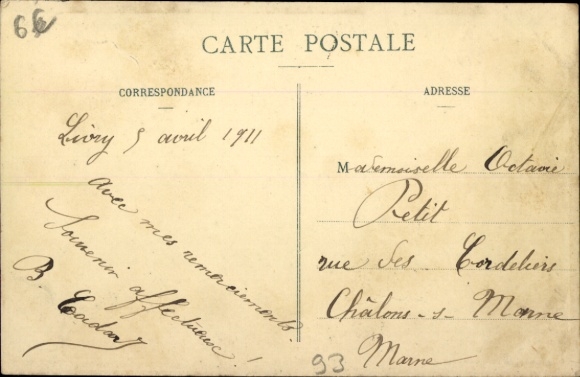 6€
CARTE POSTALE
CORRESPONDANCE
Livry 5 avril 1911
avec mes remerciements.
Souvenir affectueux !
B.
ADRESSE
Mademoiselle Octavie
Petit
rue des Cordeliers
Châlons-s-Marne
Marne
93